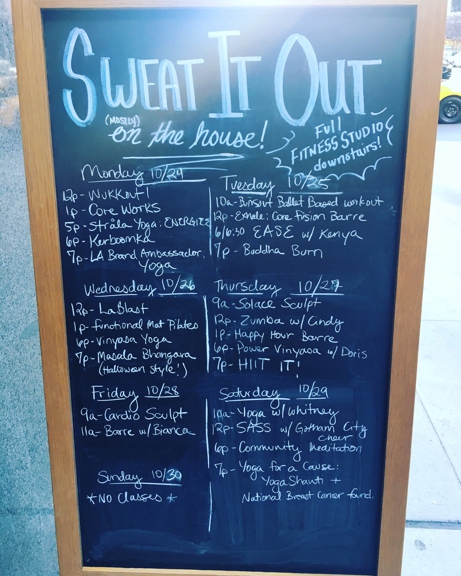 SWEAT IT OUT
(MOSTLY)
on the house!
Full
FITNESS STUDIO
downstairs!
Monday 10/24
12p- WUKKOUT!
1p- Core Works
5p- Strala Yoga: ENERGIZE
6p- Kerboomka
7p- LA Brand Ambassador:
Yoga
Tuesday 10/25
10a- Bunsout Ballet Based workout
12p- Exhale: Core Fusion Barre
6/6:30 EASE w/ Kenya
7p- Buddha Burn
Wednesday 10/26
12p- LaBlast
1p- Functional Mat Pilates
6p- Vinyasa Yoga
7p- Masala Bhangara
(Halloween style!)
Thursday 10/27
9a- Solace Sculpt
12p- Zumba w/ Cindy
1p- Happy Hour Barre
6p- Power Vinyasa w/ Doris
7p- HIIT IT!
Friday 10/28
9a- Cardio Sculpt
11a- Barre w/ Bianca
Saturday 10/29
10a- Yoga w/ Whitney
12p- SASS w/ Gotham City
cheer
6p- Community Meditation
7p- Yoga for a Cause:
Yoga Shanti +
National Breast Cancer fund.
Sunday 10/30
*NO Classes*